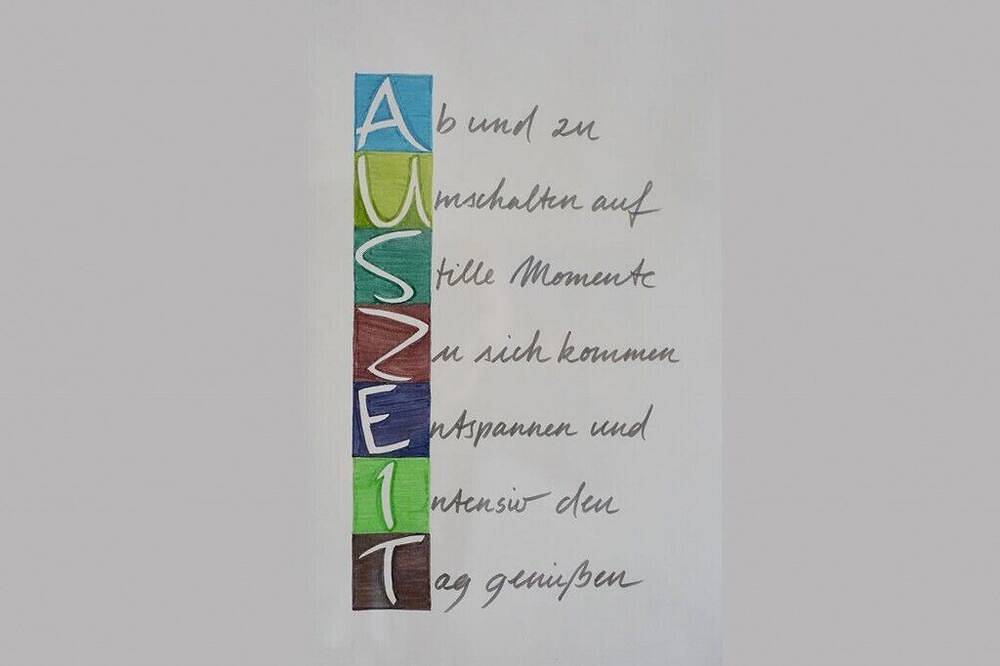 Ab und zu
Umschalten auf
Stille Momente
Zu sich kommen
Entspannen und
Intensiv den
Tag genießen